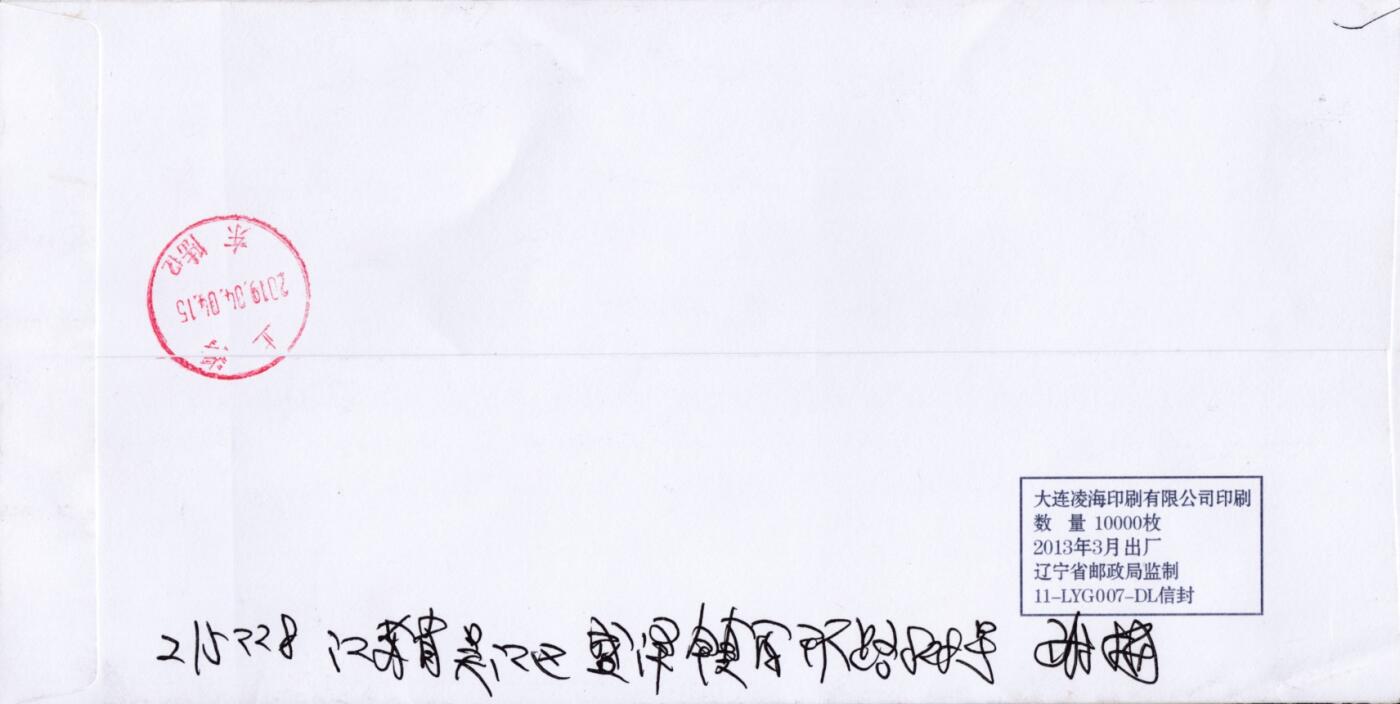 上海
2019.04.04.15
东陆12
大连凌海印刷有限公司印刷
数 量 10000枚
2013年3月出厂
辽宁省邮政局监制
11-LYG007-DL信封
215228 江苏省吴江区盛泽镇